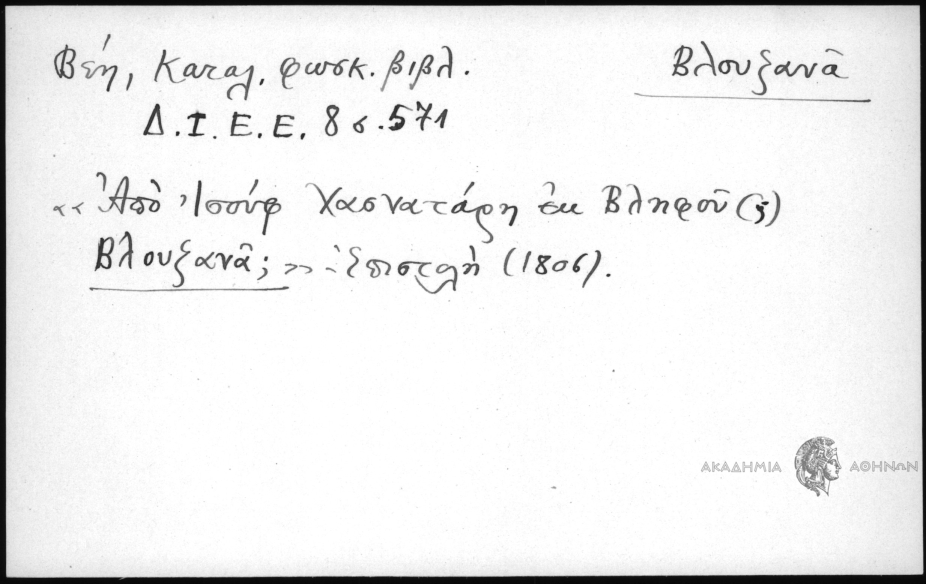 Βέη, Καταλ. φωσκ. βιβλ.
Βλουξανᾶ
Δ.Ι.Ε.Ε. 8 σ.571
«Ἀπὸ Ἰσούφ Χασνατάρη ἐκ Βληφοῦ (;)
Βλουξανᾶ;» Ἐπιστολὴ (1806).
ΑΚΑΔΗΜΙΑ ΑΘΗΝΩΝ